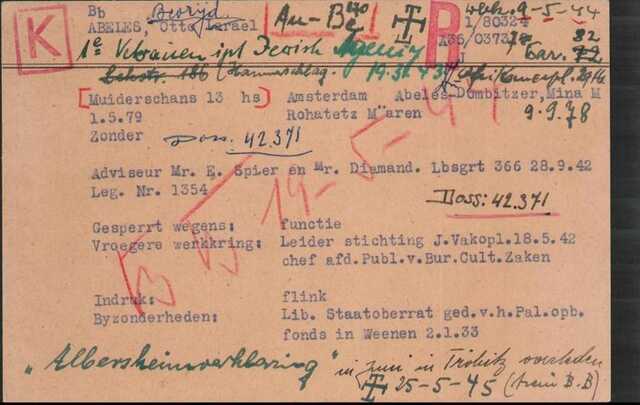 K
Bb Bevrijd An-Be 40 wbh. 9-5-44
ABELES, Otto Israel P 1/80324
1e V ipl Jewish Agency A36/0373 32
186 (Hannuschlag. 19.5. 43 Bar. 72
[Muiderschans 13 hs] Amsterdam Abeles-Dombitzer, Mina M
1.5.79 Rohatetz Mären 9.9.78
Zonder Doss. 42.371
19-5-41
Adviseur Mr. E. Spier en Mr. Diamand. Lbsgrt 366 28.9.42
Leg. Nr. 1354
Doss: 42.371
Gesperrt wegens: functie
Vroegere werkkring: Leider stichting J.Vakopl.18.5.42
chef afd.Publ.v.Bur.Cult.Zaken
BB
Indruk: flink
Byzonderheden: Lib. Staatoberrat ged.v.h.Pal.opb.
fonds in Weenen 2.1.33
"Albersheimverklaring" in Juni in Tröbitz overleden
25-5-45 (trein B.B)